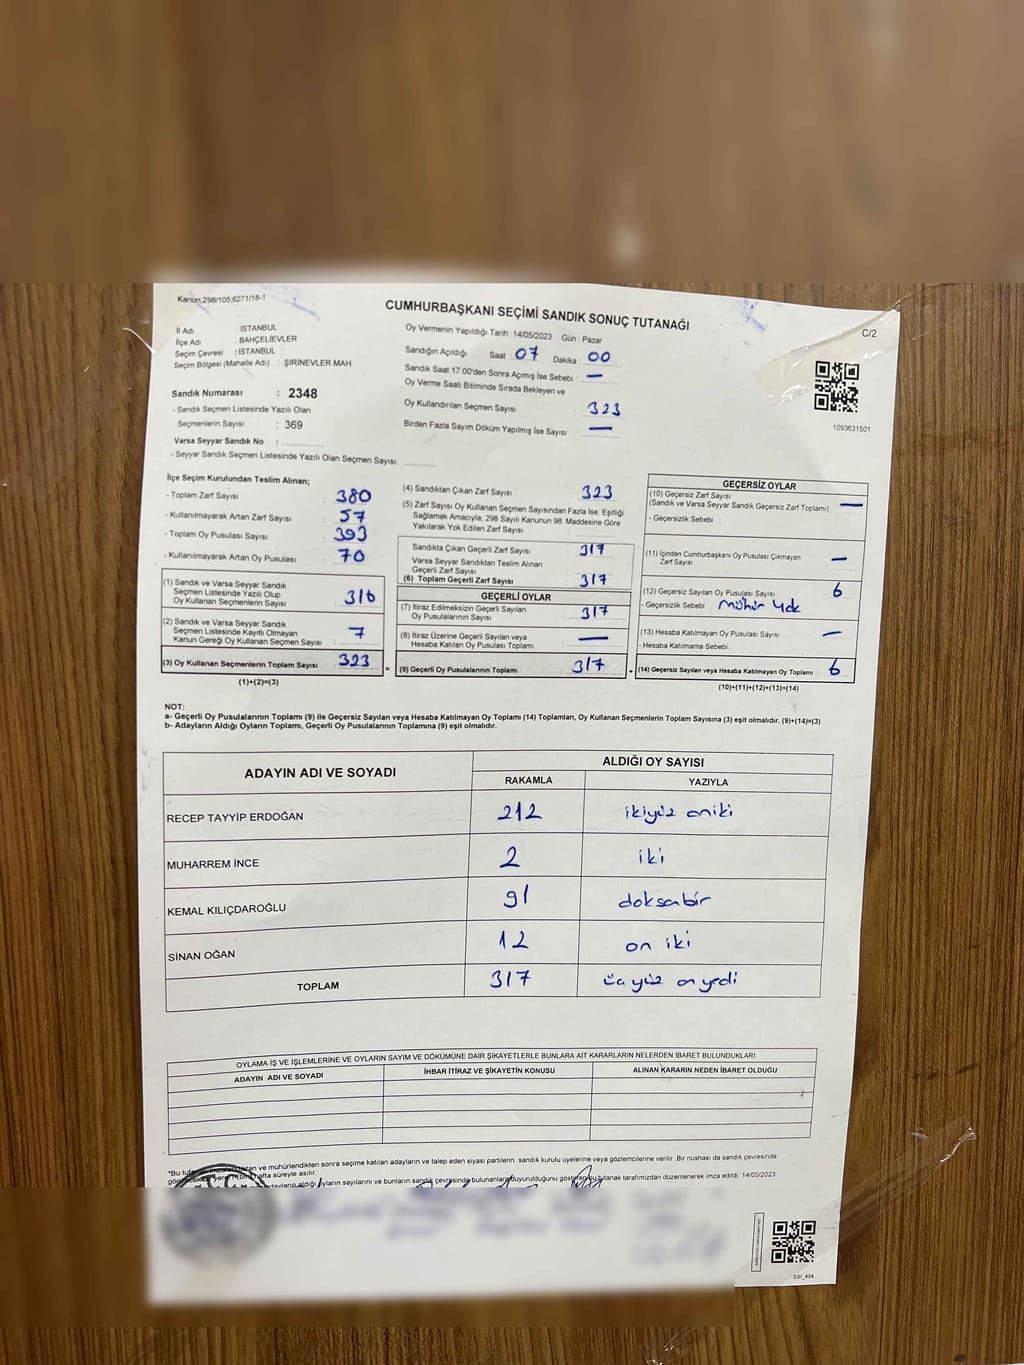 Kanun;298/105;6271/18-1
CUMHURBAŞKANI SEÇİMİ SANDIK SONUÇ TUTANAĞI
C/2
İl Adı : İSTANBUL
İlçe Adı : BAHÇELİEVLER
Seçim Çevresi : İSTANBUL
Seçim Bölgesi (Mahalle Adı) : ŞİRİNEVLER MAH.
Sandık Numarası : 2348
- Sandık Seçmen Listesinde Yazılı Olan
Seçmenlerin Sayısı : 369
Varsa Seyyar Sandık No :
- Seyyar Sandık Seçmen Listesinde Yazılı Olan Seçmen Sayısı:
Oy Vermenin Yapıldığı Tarih : 14/05/2023 Gün : Pazar
Sandığın Açıldığı Saat : 07 Dakika : 00
Sandık Saat 17.00'den Sonra Açımış İse Sebebi : —
Oy Verme Saati Bitiminde Sırada Bekleyen ve
Oy Kullandırılan Seçmen Sayısı : 323
Birden Fazla Sayım Döküm Yapılmış İse Sayısı : —
1093631501
İlçe Seçim Kurulundan Teslim Alınan;
- Toplam Zarf Sayısı : 380
- Kullanılmayarak Artan Zarf Sayısı : 57
- Toplam Oy Pusulası Sayısı : 393
- Kullanılmayarak Artan Oy Pusulası : 70
(1) Sandık ve Varsa Seyyar Sandık
Seçmen Listesinde Yazılı Olup
Oy Kullanan Seçmenlerin Sayısı 316
(2) Sandık ve Varsa Seyyar Sandık
Seçmen Listesinde Kayıtlı Olmayan
Kanun Gereği Oy Kullanan Seçmen Sayısı 7
(3) Oy Kullanan Seçmenlerin Toplam Sayısı 323
(1)+(2)=(3)
(4) Sandıktan Çıkan Zarf Sayısı : 323
(5) Zarf Sayısı Oy Kullanan Seçmen Sayısından Fazla İse, Eşitliği
Sağlamak Amacıyla; 298 Sayılı Kanunun 98. Maddesine Göre
Yakılarak Yok Edilen Zarf Sayısı :
Sandıkta Çıkan Geçerli Zarf Sayısı : 317
Varsa Seyyar Sandıktan Teslim Alınan
Geçerli Zarf Sayısı
(6) Toplam Geçerli Zarf Sayısı : 317
GEÇERLİ OYLAR
(7) İtiraz Edilmeksizin Geçerli Sayılan
Oy Pusulalarının Sayısı : 317
(8) İtiraz Üzerine Geçerli Sayılan veya
Hesaba Katılan Oy Pusulası Toplamı : —
= (9) Geçerli Oy Pusulalarının Toplamı : 317 +
GEÇERSİZ OYLAR
(10) Geçersiz Zarf Sayısı
(Sandık ve Varsa Seyyar Sandık Geçersiz Zarf Toplamı) —
- Geçersizlik Sebebi :
(11) İçinden Cumhurbaşkanı Oy Pusulası Çıkmayan
Zarf Sayısı : —
(12) Geçersiz Sayılan Oy Pusulası Sayısı : 6
- Geçersizlik Sebebi : mühür yok
(13) Hesaba Katılmayan Oy Pusulası Sayısı : —
- Hesaba Katılmama Sebebi :
(14) Geçersiz Sayılan veya Hesaba Katılmayan Oy Toplamı : 6
(10)+(11)+(12)+(13)=(14)
NOT:
a- Geçerli Oy Pusulalarının Toplamı (9) ile Geçersiz Sayılan veya Hesaba Katılmayan Oy Toplamı (14) Toplamları, Oy Kullanan Seçmenlerin Toplam Sayısına (3) eşit olmalıdır. (9)+(14)=(3)
b- Adayların Aldığı Oyların Toplamı, Geçerli Oy Pusulalarının Toplamına (9) eşit olmalıdır.
ADAYIN ADI VE SOYADI ALDIĞI OY SAYISI
RAKAMLA YAZIYLA
RECEP TAYYİP ERDOĞAN 212 ikiyüz oniki
MUHARREM İNCE 2 iki
KEMAL KILIÇDAROĞLU 91 doksabir
SİNAN OĞAN 12 on iki
TOPLAM 317 üçyüz onyedi
OYLAMA İŞ VE İŞLEMLERİNE VE OYLARIN SAYIM VE DÖKÜMÜNE DAİR ŞİKAYETLERLE BUNLARA AİT KARARLARIN NELERDEN İBARET BULUNDUKLARI
ADAYIN ADI VE SOYADI İHBAR İTİRAZ VE ŞİKAYETİN KONUSU ALINAN KARARIN NEDEN İBARET OLDUĞU
*Bu ve mühürlendikten sonra seçime katılan adayların ve talep eden siyasi partilerin sandık kurulu üyelerine veya gözlemcilerine verilir. Bir nüshası da sandık çevresinde
hafta süreyle asılır.
aldığı oyların sayılarını ve bunların sandık çevresinde bulunanlara duyurulduğunu gösteren bu tutanak tarafımızdan düzenlenerek imza edildi. 14/05/2023
SSI_404